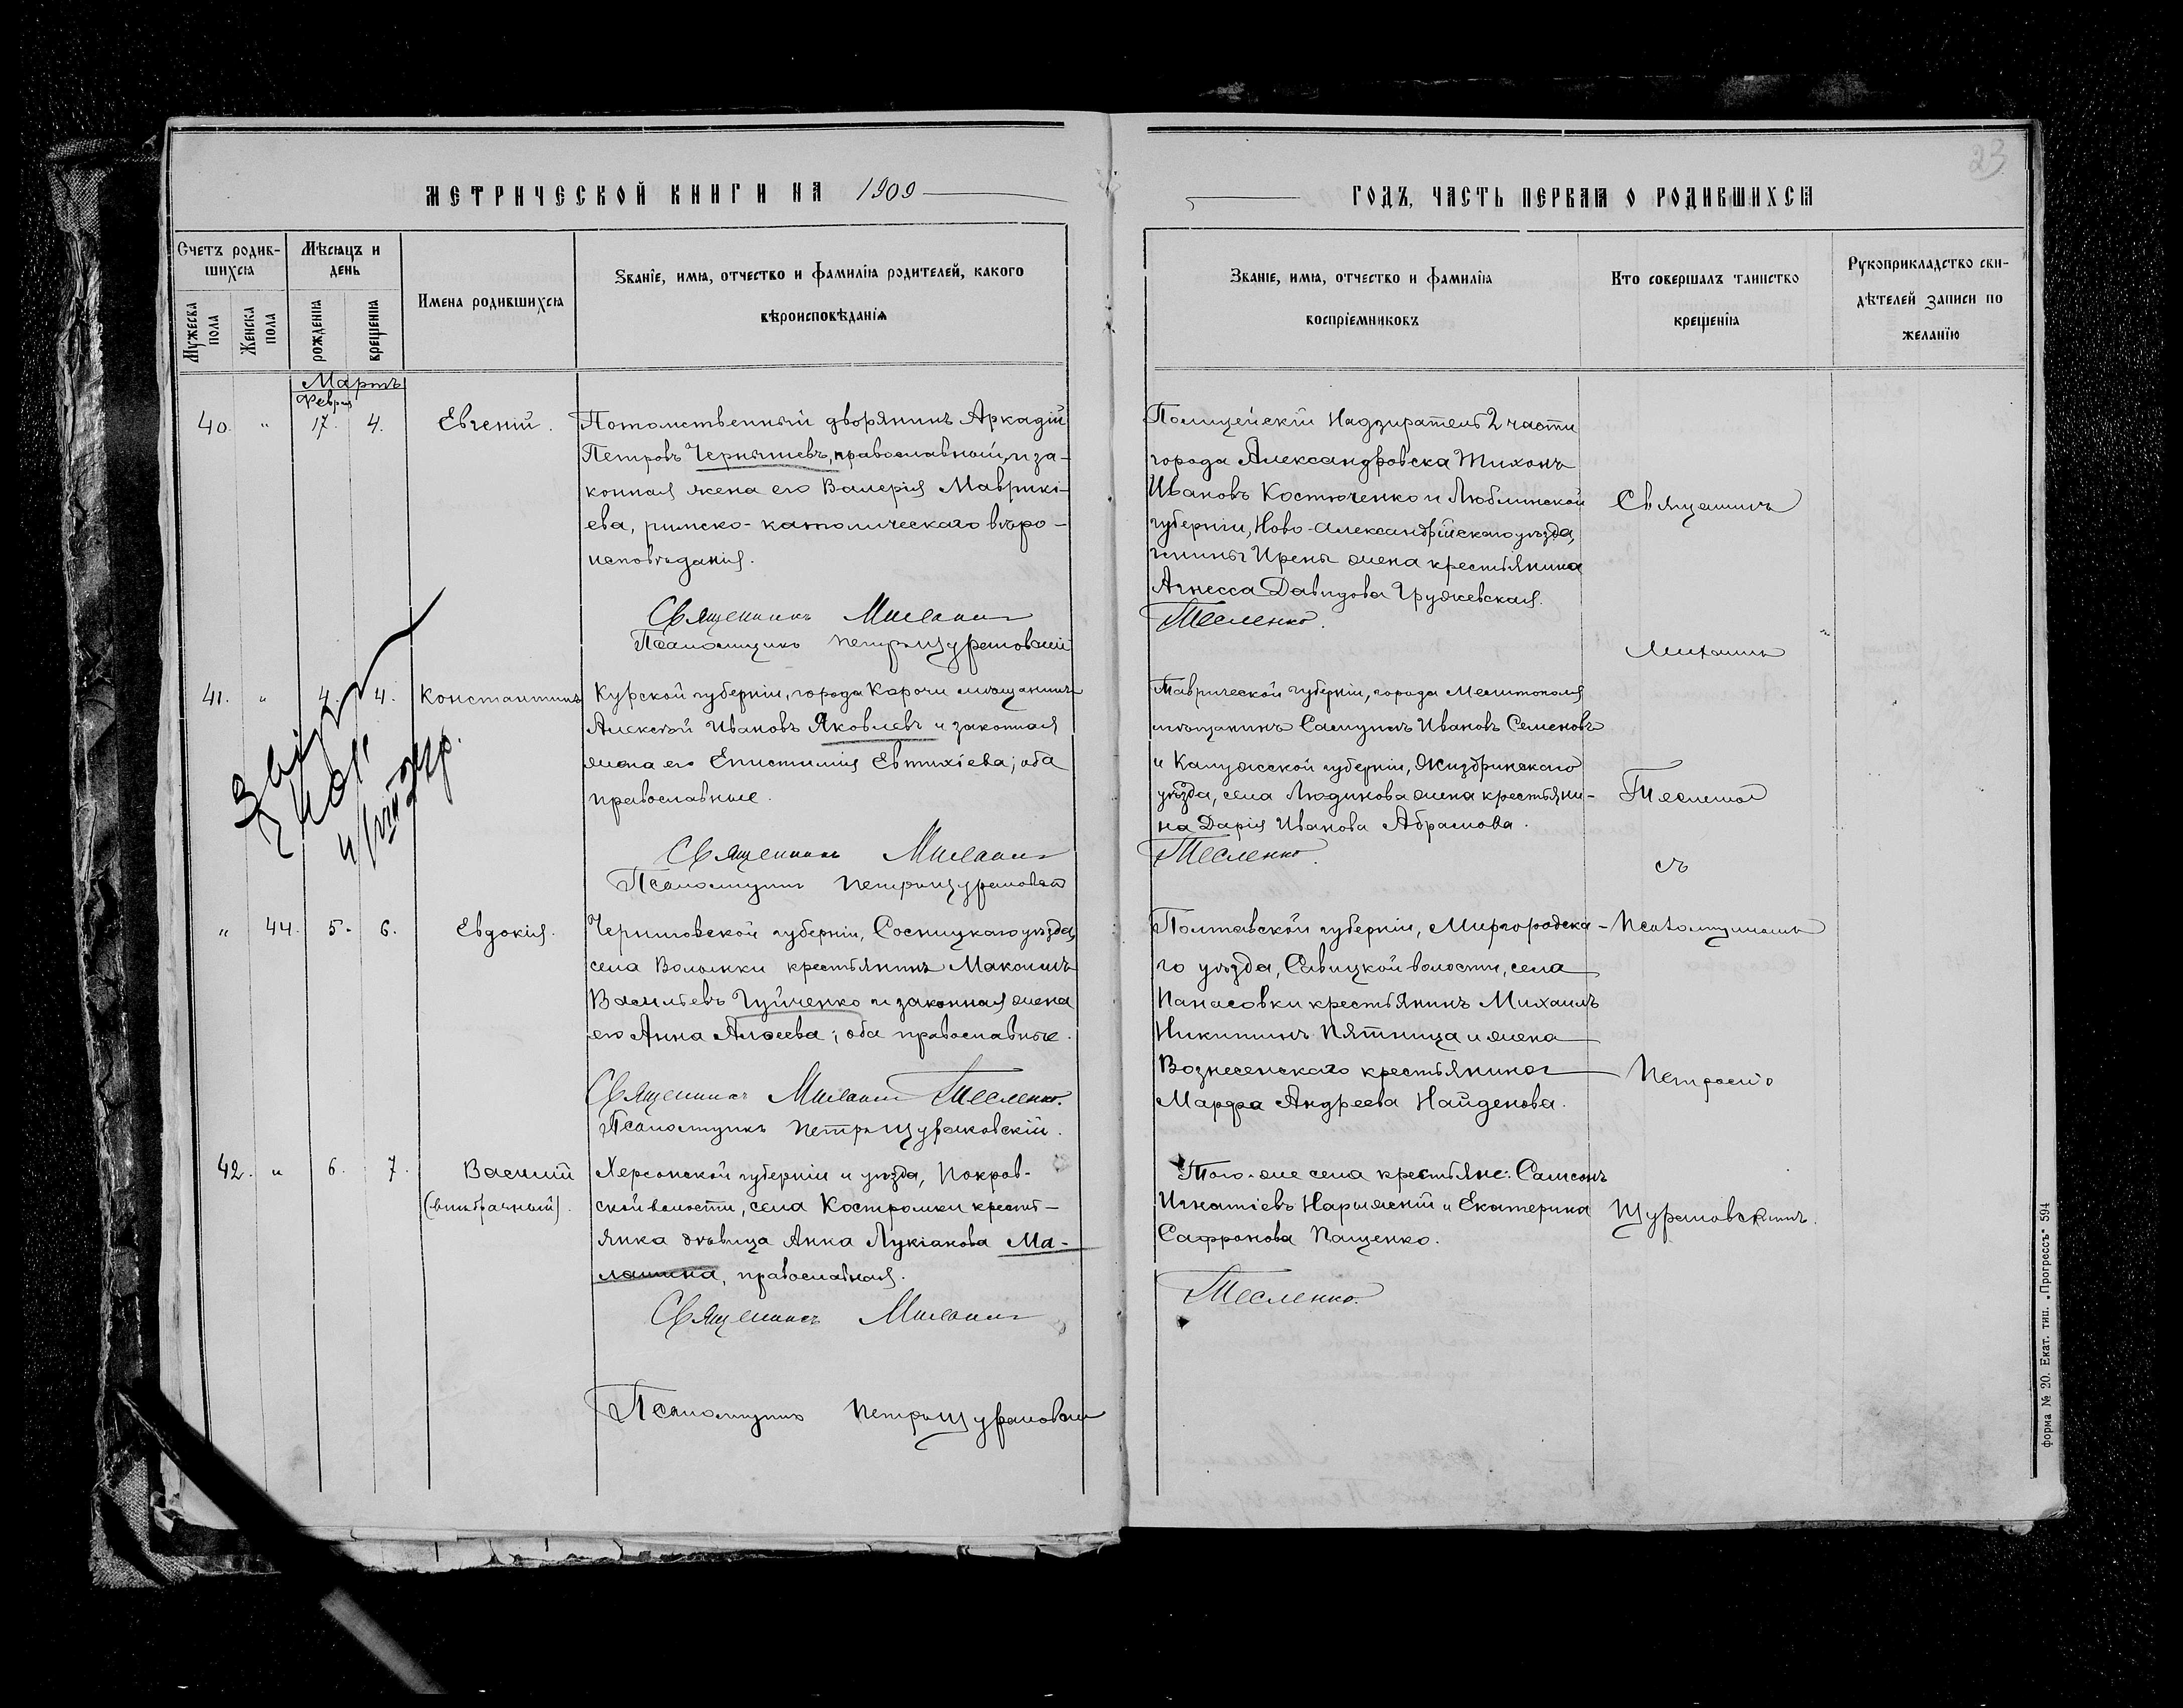 23
МЕТРИЧЕСКОЙ КНИГИ НА 1909
ГОДЪ, ЧАСТЬ ПЕРВАЯ О РОДИВШИХСЯ
Счетъ родив-
шихся
Мужеска пола
Женска пола
Мѣсяцъ и
день
рожденія
крещенія
Имена родившихся
Званіе, имя, отчество и фамилія родителей, какого
вѣроисповѣданія
Званіе, имя, отчество и фамилія
воспріемниковъ
Кто совершалъ таинство
крещенія
Рукоприкладство сви-
дѣтелей записи по
желанію
Мартъ
Февраля
40. " 17. 4. Евгеній.
Потомственный дворянинъ Аркадій
Петровъ Чернышевъ, православный, и за-
конная жена его Валерія Маврикі-
ева, римско-католическаго вѣро-
исповѣданія.
Священникъ Михаилъ
Псаломщикъ Петръ Щурановскій
Полицейскій Надзиратель 2 части
города Александровска Тихонъ
Ивановъ Костюченко и Люблинской
губерніи, Ново-Александрійскаго уѣзда,
гмины Ирены жена крестьянина
Агнесса Давидова Гружевская.
Тесленко.
Священникъ
Михаилъ
41. " 4. 4. Константинъ
Курской губерніи, города Корочи мѣщанинъ
Алексѣй Ивановъ Яковлевъ и законная
жена его Епистимія Евтихіева; оба
православные.
Священникъ Михаилъ
Псаломщикъ Петръ Щурановскій
Таврической губерніи, города Мелитополя
мѣщанинъ Самуилъ Ивановъ Семеновъ
и Калужской губерніи, Жиздринскаго
уѣзда, села Людинова жена крестьяни-
на Дарія Иванова Абрамова.
Тесленко.
Тесленко
съ
" 44. 5. 6. Евдокія.
Черниговской губерніи, Сосницкаго уѣзда,
села Волынки крестьянинъ Максимъ
Васильевъ Гуйченко и законная жена
его Анна Алѳеева; оба православные.
Священникъ Михаилъ Тесленко.
Псаломщикъ Петръ Щурановскій.
Полтавской губерніи, Миргородска-
го уѣзда, Савицкой волости, села
Панасовки крестьянинъ Михаилъ
Никитинъ Пятница и жена
Вознесенскаго крестьянина
Марфа Андреева Найденова.
Псаломщикомъ
Петромъ
42. " 6. 7. Василій
(внѣбрачный).
Херсонской губерніи и уѣзда, Покров-
ской волости, села Костромки кресть-
янка дѣвица Анна Лукіанова Ма-
лашина, православная.
Священникъ Михаилъ
Псаломщикъ Петръ Щурановскій
Того-же села крестьяне: Самсонъ
Игнатіевъ Нарыжній и Екатерина
Сафронова Пащенко.
Тесленко.
Щурановскимъ.
форма № 20. Екат. тип. „Прогрессъ" 594